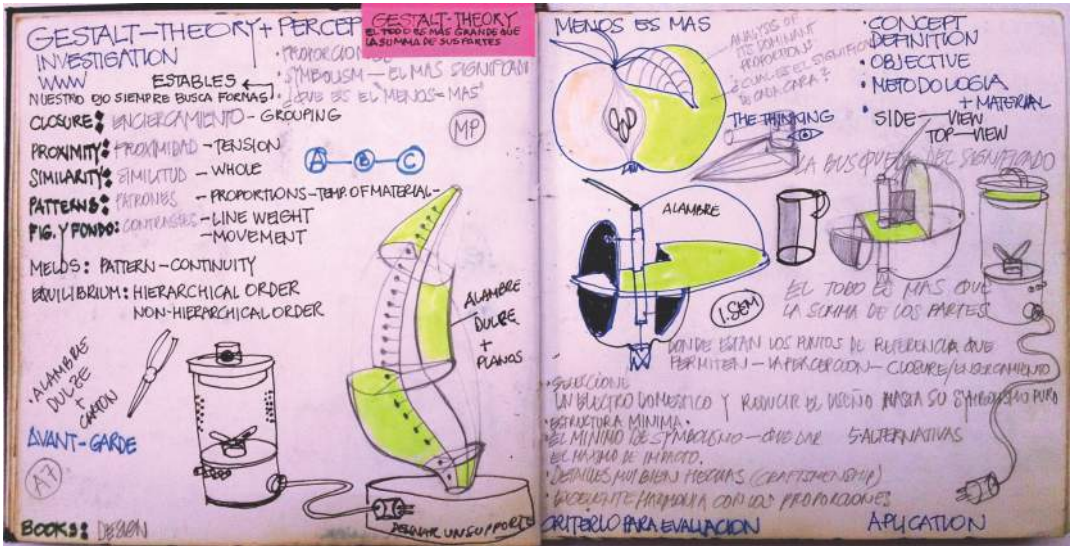 GESTALT-THEORY + PERCEP
GESTALT-THEORY
EL TODO ES MAS GRANDE QUE
LA SUMMA DE SUS PARTES
INVESTIGATION
WWW
ESTABLES
NUESTRO OJO SIEMPRE BUSCA FORMAS
• PROPORCION
• SYMBOLISM — EL MAS SIGNIFICADO
• QUE ES EL MENOS = MAS
CLOSURE: ENCIERCAMIENTO - GROUPING
PROXIMITY: PROXIMIDAD - TENSION
SIMILARITY: SIMILITUD - WHOLE
PATTERNS: PATRONES - PROPORTIONS - TEMP. OF MATERIAL -
FIG. Y FONDO: CONTRASTES - LINE WEIGHT
- MOVEMENT
MP
A B C
MELOS: PATTERN - CONTINUITY
EQUILIBRIUM: HIERARCHICAL ORDER
NON-HIERARCHICAL ORDER
• ALAMBRE
DULZE
+
CARTON
ALAMBRE
DULZE
+
PLANOS
AVANT-GARDE
A7
BOOKS: DESIGN
DESIGNAR UN SUPPORTE
MENOS ES MAS
ANALYSIS OF
ITS DOMINANT
PROPORTIONS
¿CUAL ES EL SIGNIFICADO
DE CADA CARA?
THE THINKING
• CONCEPT
DEFINITION
• OBJECTIVE
• METODOLOGIA
+ MATERIAL
SIDE — VIEW
TOP — VIEW
LA BUSQUEDA DEL SIGNIFICADO
ALAMBRE
1. SEM
EL TODO ES MAS QUE
LA SUMMA DE LOS PARTES
DONDE ESTAN LOS PUNTOS DE REFERENCIA QUE
PERMITEN — LA PERCEPCION — CLOSURE/ENSERCAMIENTO
• SELECCIONE
UN ELECTRO DOMESTICO Y REDUCIR EL DISEÑO HASTA SU SYMBOLISMO PURO
• ESTRUCTURA MINIMA •
• EL MINIMO DE SYMBOLISMO — QUE DAR 5 ALTERNATIVAS
EL MAXIMO DE IMPACTO.
• DETAILES MUY BIEN HECHAS (CRAFTSMENSHIP)
• EXCELENTE HARMONIA CON LOS PROPORCIONES
CRITERIO PARA EVALUACION
APLICATION